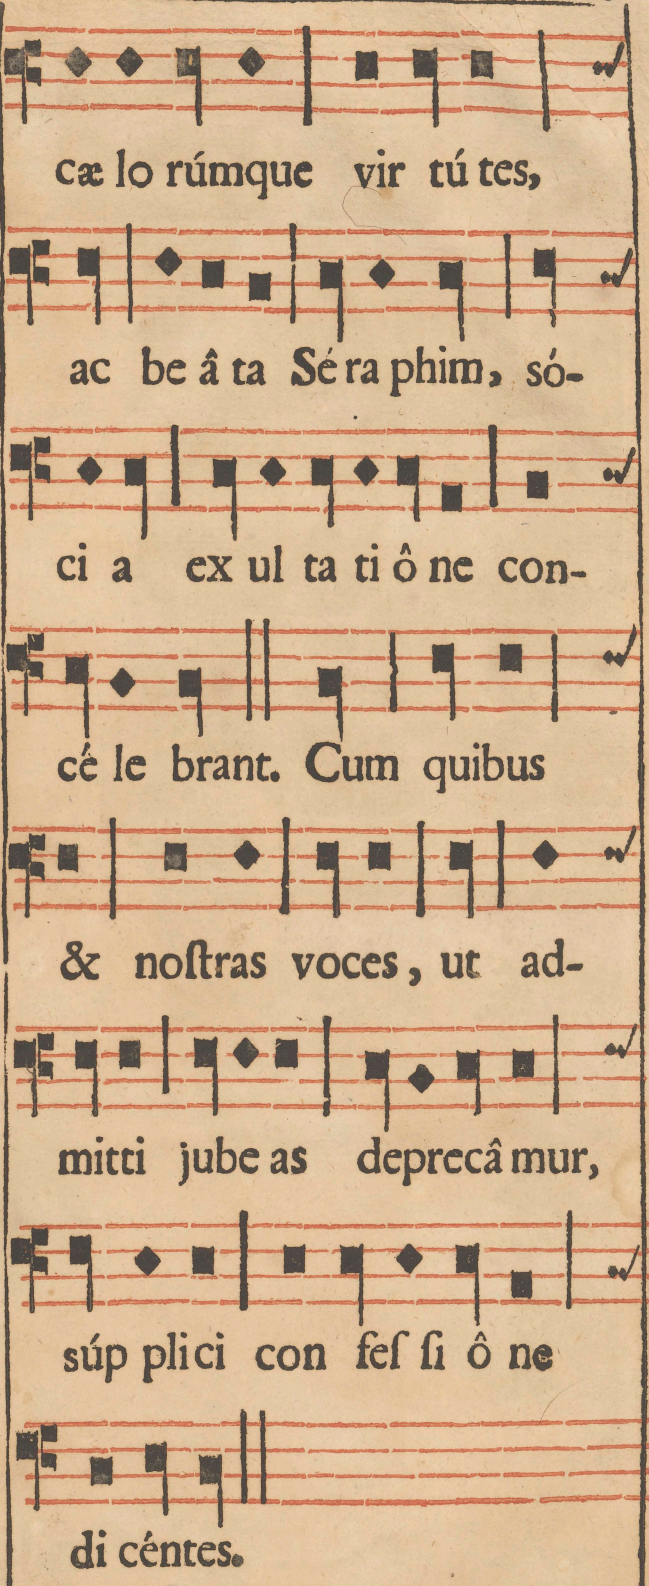 cæ lo rúmque vir tú tes,
ac be â ta Sé ra phim, só-
ci a ex ul ta ti ô ne con-
cé le brant. Cum quibus
& noſtras voces, ut ad-
mitti jube as deprecâ mur,
súp plici con feſ ſi ô ne
di céntes.